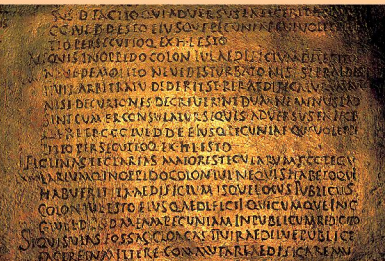 QVI ADVERSVS EA
ESTO EIVSQVE PECVNIAE
TIO PERSECVTIOQ EX H L ESTO
NE QVIS IN OPPIDO COLON IVL AEDIFICIVM
NEVE DEMOLITO NEVE DISTVRBATO NISI SI PRAEDES
II VIR ARBITRATV DEDERIT SE REDAEDIFICATVRVM
NISI DECVRIONES DECREVERINT DVM NE MINVS L AD
SINT CVM E R CONSVLATVR SI QVIS ADVERSVS EA FECE
EIVSQ PECVNIAE QVI VOLET PE
TITIO PERSECVTIOQ EX H L ESTO
FIGLINAS TEGLARIAS MAIORES TEGVLARVM CCC TEGV
LARIVMQ IN OPPIDO COLON IVL NE QVIS HABETO QVI
HABVERIT IT AEDIFICIVM ISQVE LOCVS PVBLICVS
COLON IVL ESTO EIVSQ AEDIFICII QVICVMQVE IN C
G IVL D D S D M EAM PECVNIAM IN PVBLICVM REDIGITO
SI QVIS VIAS FOSSAS CLOACAS IIVIR AEDILVE PVBLICE
FACERE INMITTERE COMMVTARE AEDIFICARE MV